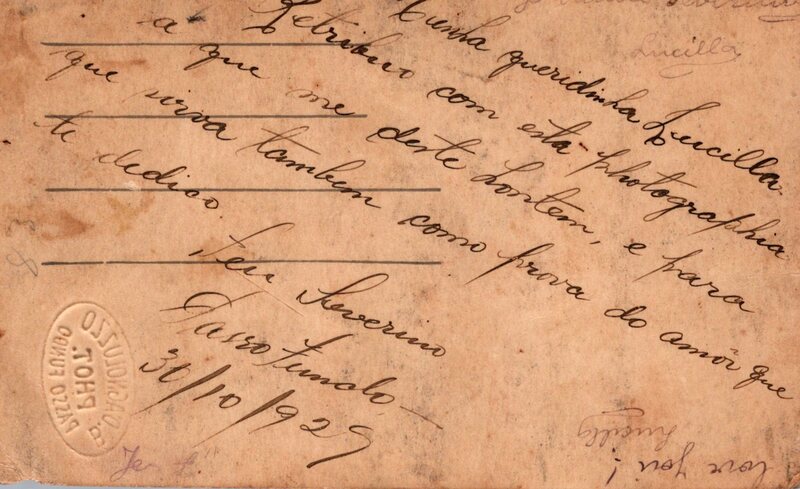 Minha queridinha Lucilla
Retribuo com esta photographia
a que me deste hontem, e para
que sirva tambem como prova do amor que
te dedico.
Teu Severino
Passo Fundo, —
30/10/929
Lucilla
PHOT.
PASSO FUNDO
Lucilla
love you!